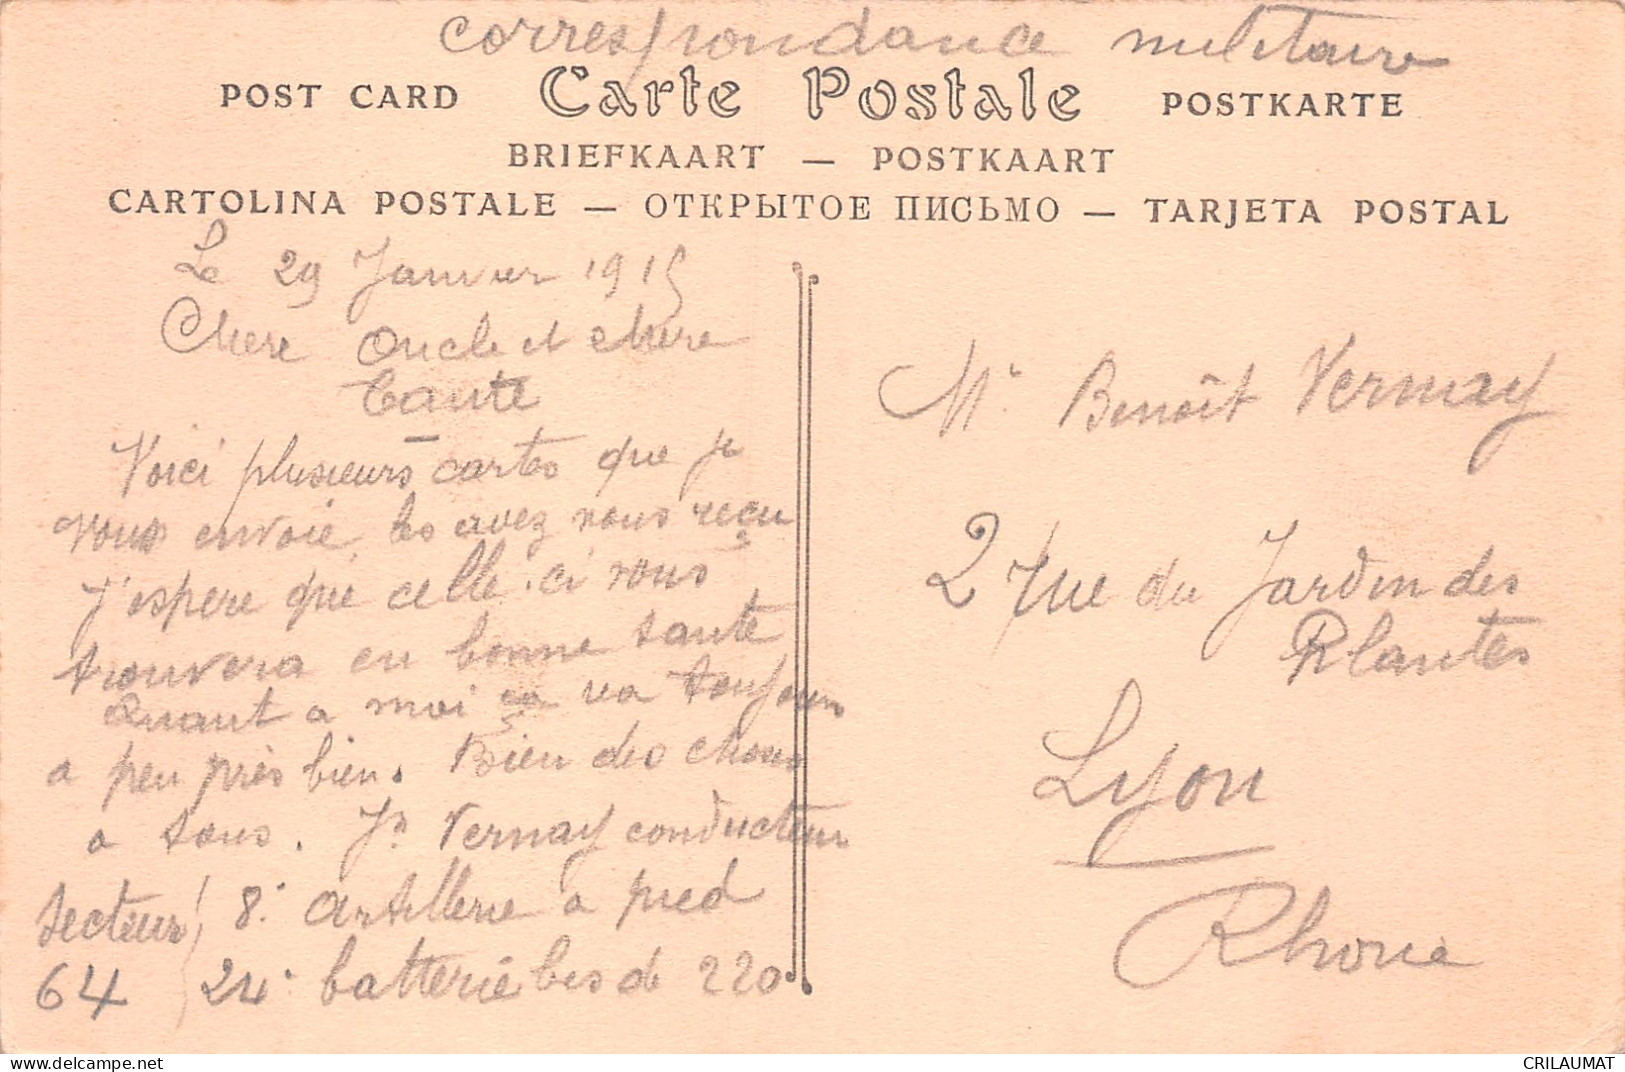 correspondance militaire
POST CARD Carte Postale POSTKARTE
BRIEFKAART — POSTKAART
CARTOLINA POSTALE — ОТКРЫТОЕ ПИСЬМО — TARJETA POSTAL
Le 29 Janvier 1915
Chere Oncle et chere
Tante
Voici plusieurs cartes que je
vous envoie les avez vous reçu
J'espere que celle-ci vous
trouvera en bonne sante
Quant a moi ça va toujours
a peu près bien. Bien des choses
a tous. Jn Vernay conducteur
8e artillerie a pied
24e batterie bis de 220
Secteur
64
Mr Benoît Vernay
2 rue du Jardin des
Plantes
Lyon
Rhone
delcampe.net
CRILAUMAT